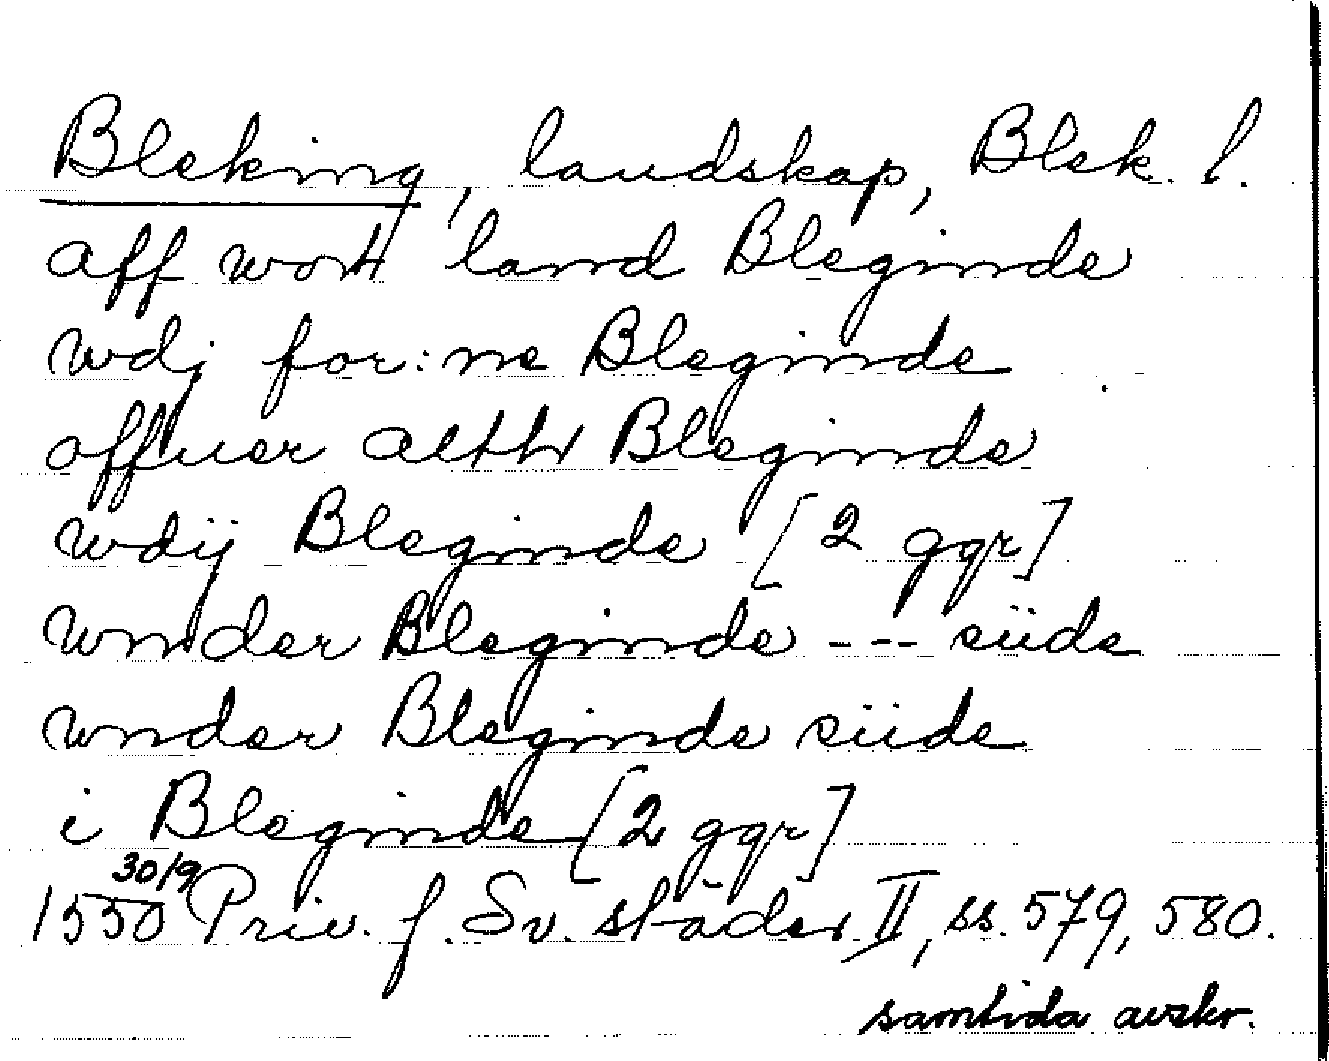 Bleking, landskap, Blek. l.
aff wort land Bleginde
wdj for:ne Bleginde
offuer althr Bleginde
wdij Bleginde [2 ggr]
wnder Bleginde --- siide
wnder Bleginde siide
i Bleginde [2 ggr]
1550 30/9 Priv. f. Sv. städer II, ss. 579, 580.
samtida avskr.